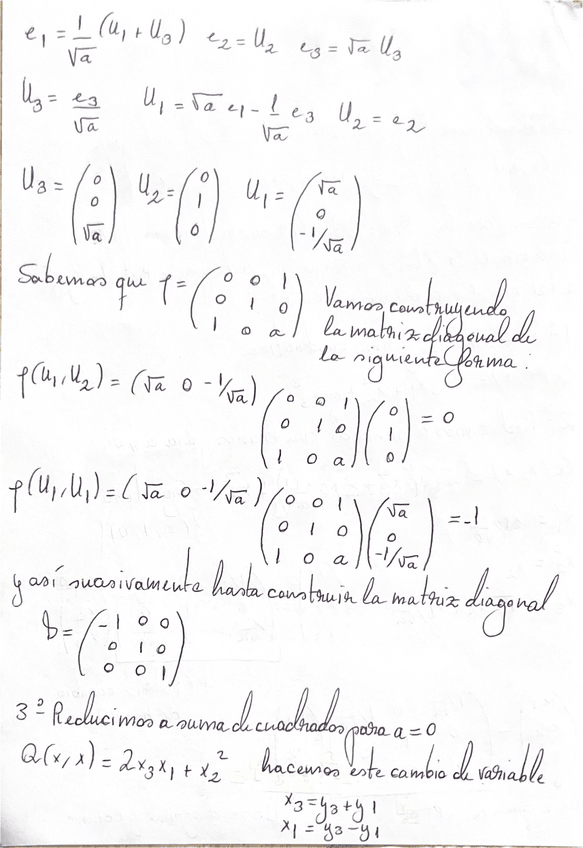 e₁ = 1/√a (U₁ + U₃) e₂ = U₂ e₃ = √a U₃
U₃ = e₃/√a U₁ = √a e₁ - 1/√a e₃ U₂ = e₂
U₃ = (0 0 √a) U₂ = (0 1 0) U₁ = (√a 0 -1/√a)
Sabemos que φ = (0 0 1 0 1 0 1 0 a) Vamos construyendo
la matriz diagonal de
la siguiente forma:
φ(U₁, U₂) = (√a 0 -1/√a) (0 0 1 0 1 0 1 0 a) (0 1 0) = 0
φ(U₁, U₁) = (√a 0 -1/√a) (0 0 1 0 1 0 1 0 a) (√a 0 -1/√a) = -1
y así suasivamente hasta construir la matriz diagonal
D = (-1 0 0 0 1 0 0 0 1)
3º - Reducimos a suma de cuadrados para a = 0
Q(x, x) = 2x₃x₁ + x₂² hacemos este cambio de variable
x₃ = y₃ + y₁
x₁ = y₃ - y₁